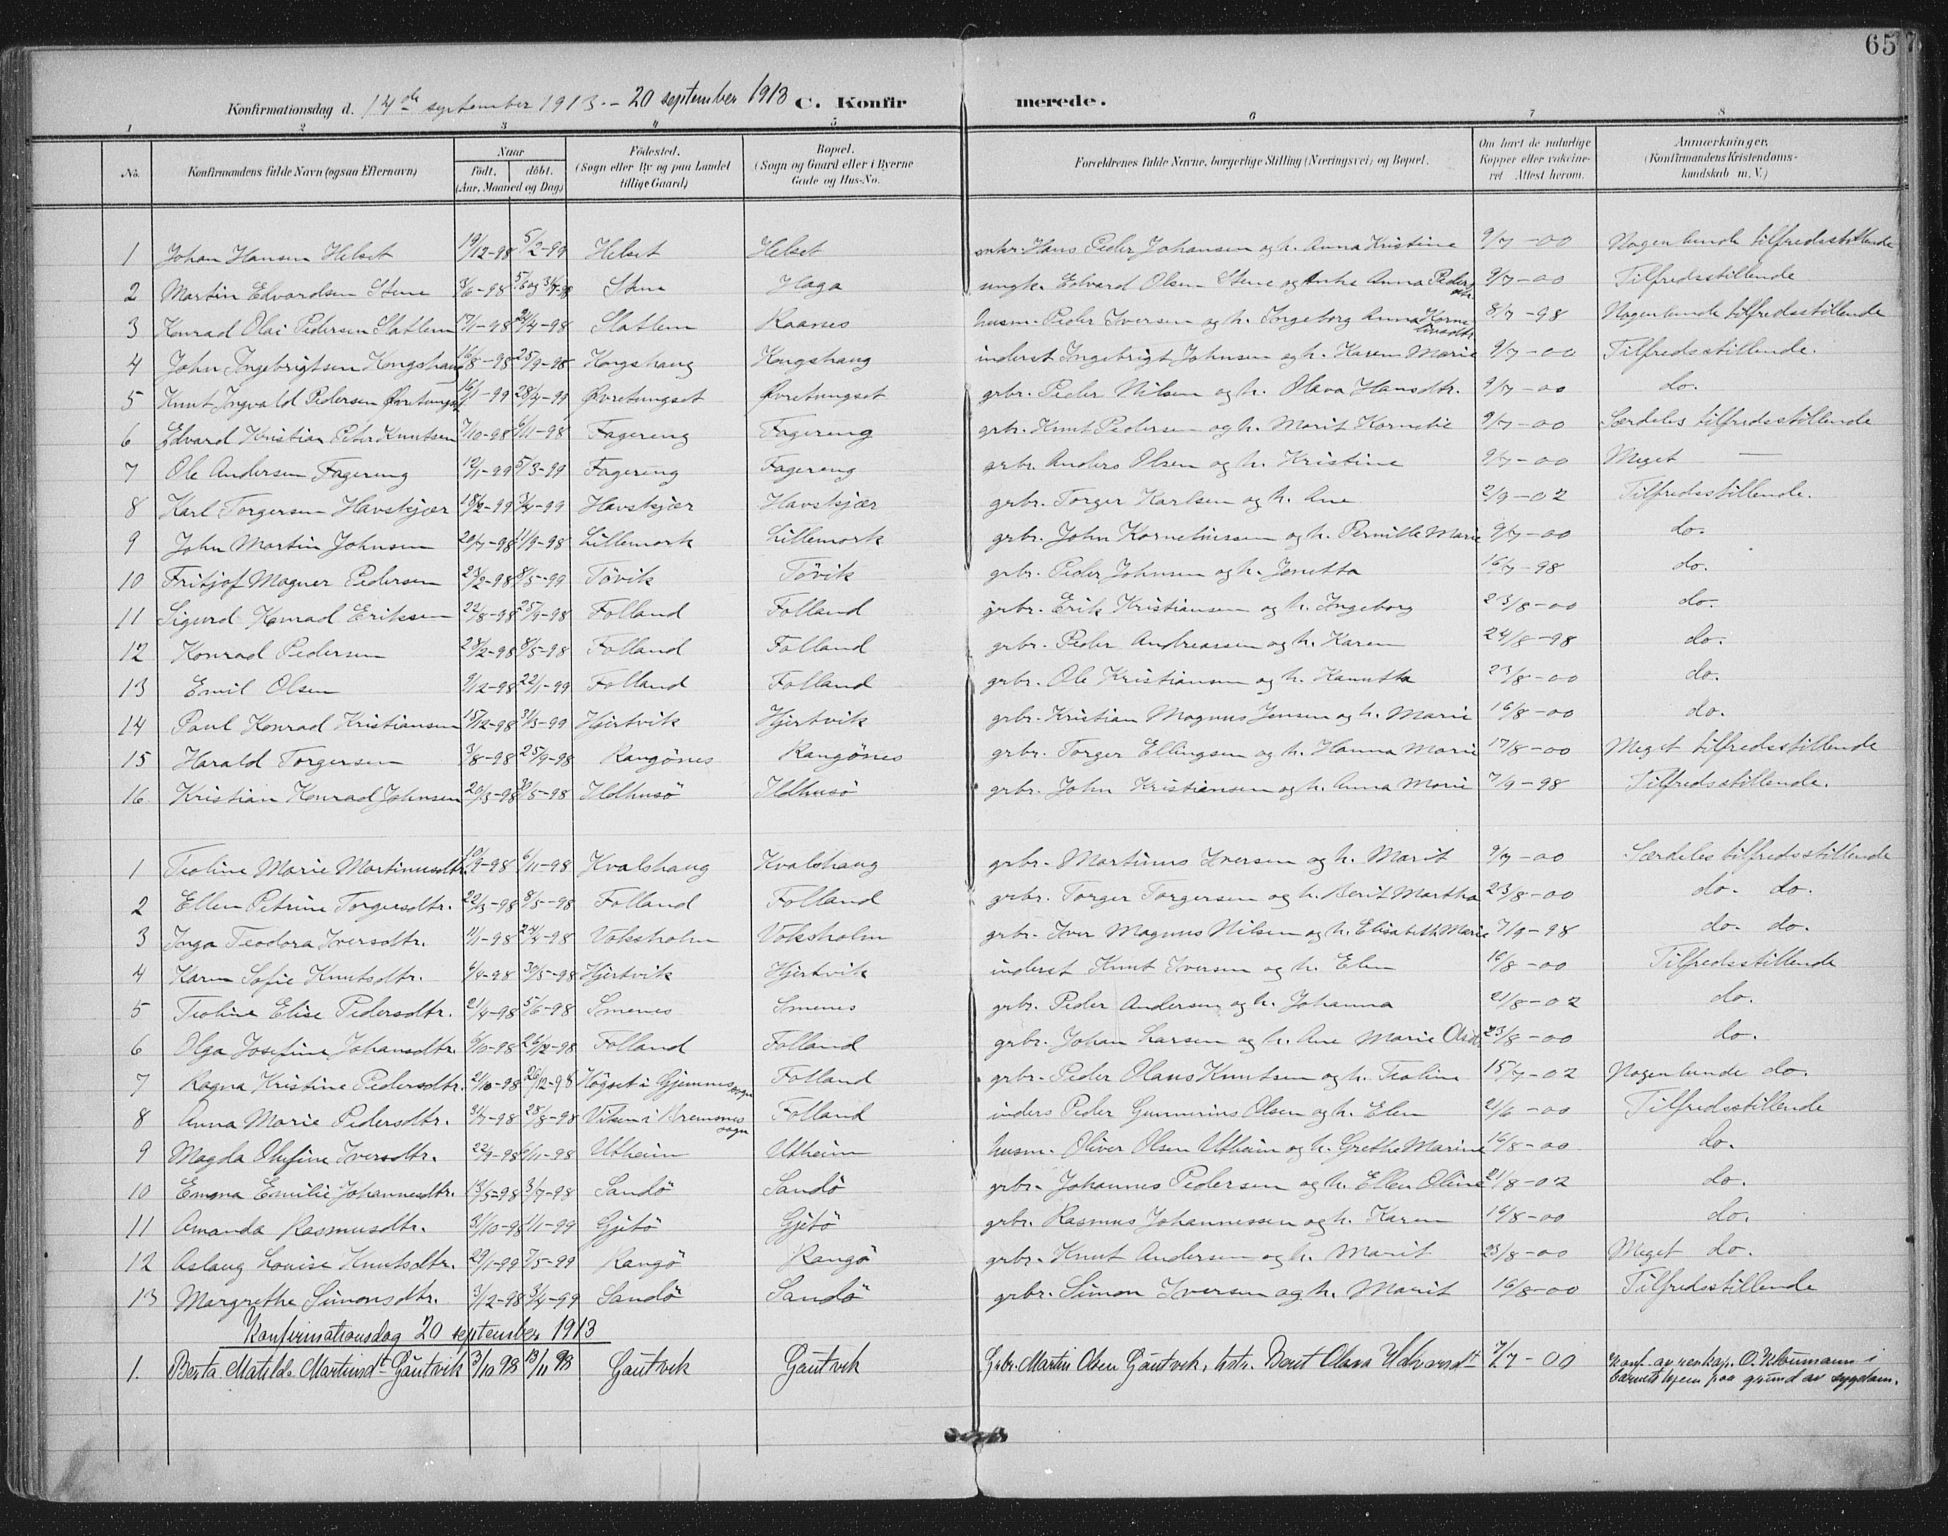 65
Konfirmationsdag d. 14de september 1913. - 20 september 1913 C. Konfirmerede.
1 2 3 4 5 6 7 8
No. Konfirmandens fulde Navn (ogsaa Efternavn) Naar født, døbt. (Aar, Maaned og Dag) Fødested. (Sogn eller By og paa Landet tillige Gaard) Bopæl. (Sogn og Gaard eller i Byerne Gade og Hus-No. Forældrenes fulde Navne, borgerlige Stilling (Næringsvei) og Bopæl. Om havt de naturlige Kopper eller vaccineret Attest herom. Anmærkninger. (Konfirmandens Kristendomskundskab m. V.)
1 Johan Hansen Helset 19/12-98 5/2-99 Helset Helset Hans Peder Johansen og h. Anna Kristine 9/7-00 Nogenlunde tilfredsstillende
2 Martin Edvardsen Stene 3/6-98 Stene Haga ungk. Edvard Olsen Stene og enke Anna Pedersdtr. 9/7-00 Tilfredsstillende
3 Konrad Olai Pedersen Slatlem 17/1-98 24/4-98 Slatlem Raanes husm. Peder Iversen og h. Ingeborg Anna Korneliusdtr. 8/7-98 Nogenlunde tilfredsstillende
4 John Ingebrigtsen Kongshaug 16/8-98 25/9-98 Kongshaug Kongshaug inderst Ingebrigt Johnsen og h. Karen Marie 9/7-00 Tilfredsstillende.
5 Knut Ingvald Pedersen Øvretungset 16/1-99 23/4-99 Øvretungset Øvretungset grbr. Peder Nilsen og h. Olava Hansdtr. 9/7-00 do.
6 Edvard Kristian Peter Knutsen 7/10-98 6/11-98 Fagereng Fagereng grbr. Knut Pedersen og h. Marit Kornelie 9/7-00 Særdeles tilfredsstillende
7 Ole Andersen Fagereng 12/1-99 5/3-99 Fagereng Fagereng grbr. Anders Olsen og h. Kristine 9/7-00 Meget —
8 Karl Torgersen Havskjær 18/2-99 3/4-99 Havskjær Havskjær grbr. Torger Karlsen og h. Ane 2/9-02 Tilfredsstillende.
9 John Martin Johnsen 20/7-98 11/9-98 Lillemork Lillemork grbr. John Korneliussen og h. Pernille Marie 9/7-00 do.
10 Fritjof Magner Pedersen 23/2-98 8/5-99 Tövik Tövik grbr. Peder Johnsen og h. Jenetta 16/7-98 do.
11 Sigurd Konrad Eriksen 22/8-98 25/9-98 Folland Folland grbr. Erik Kristiansen og h. Ingeborg 23/8-00 do.
12 Konrad Pedersen 23/2-98 8/5-98 Folland Folland grbr. Peder Andreassen og h. Karen 24/8-98 do.
13 Emil Olsen 9/12-98 22/1-99 Folland Folland grbr. Ole Kristiansen og h. Kanutta 23/8-00 do.
14 Paul Konrad Kristiansen 15/12-98 3/3-99 Hjertvik Hjertvik grbr. Kristian Magnus Jensen og h. Marie 16/8-00 do.
15 Harald Torgersen 3/8-98 25/9-98 Rangönes Rangönes grbr. Torger Ellingsen og h. Hanna Marie 17/8-00 Meget tilfredsstillende
16 Kristian Konrad Johnsen 20/3-98 30/5-98 Ildhusö Ildhusö grbr. John Kristiansen og h. Anna Marie 7/9-98 Tilfredsstillende.
1 Teoline Marie Martinusdtr. 10/9-98 6/11-98 Kvalshaug Kvalshaug grbr. Martinus Iversen og h. Marit 9/7-00 Særdeles tilfredsstillende
2 Ellen Petrine Torgersdtr. 22/3-98 8/5-98 Folland Folland grbr. Torger Torgersen og h. Berit Martha 23/8-00 do. do.
3 Inga Teodora Iversdtr. 11/1-98 24/4-98 Voksholm Voksholm grbr. Iver Magnus Nilsen og h. Elisabeth Marie 7/9-98 do. do.
4 Karen Sofie Knutsdtr. 6/4-98 30/5-98 Hjertvik Hjertvik inderst Knut Iversen og h. Elen 16/8-00 Tilfredsstillende
5 Teoline Elise Pedersdtr. 21/4-98 5/6-98 Smenes Smenes grbr. Peder Andersen og h. Johanna 21/8-02 do.
6 Olga Josefine Johansdtr. 6/10-98 26/12-98 Folland Folland grbr. Johan Larsen og h. Ane Marie Olsd. 23/8-00 do.
7 Ragna Kristine Pedersdtr. 21/10-98 26/12-98 Högset i Gjemnes sogn Folland grbr. Peder Olaus Knutsen og h. Teoline 15/7-02 Nogenlunde do.
8 Anna Marie Pedersdtr. 31/7-98 28/8-98 Viken i Bremsnes sogn Folland inders Peder Gunnerius Olsen og h. Elen 21/6-00 Tilfredsstillende
9 Magda Olufine Iversdtr. 22/9-98 6/11-98 Utheim Utheim husm. Oliver Olsen Utheim og h. Grethe Marine 16/8-00 do.
10 Emma Emilie Johannesdtr. 13/5-98 3/7-98 Sandö Sandö grbr. Johannes Pedersen og h. Ellen Oline 21/8-02 do.
11 Amanda Rasmusdtr. 31/10-98 1/1-99 Gjetö Gjetö grbr. Rasmus Johannessen og h. Karen 16/8-00 do.
12 Aslaug Louise Knutsdtr. 29/1-99 7/5-99 Rangö Rangö grbr. Knut Andersen og h. Marit 23/8-00 Meget do.
13 Margrethe Simonsdtr. 3/12-98 3/4-99 Sandö Sandö grbr. Simon Iversen og h. Marit 16/8-00 Tilfredsstillende
Konfirmationsdag 20 september 1913
1. Berta Matilde Martinsdt Gautvik 3/10 98 13/11 98 Gautvik Gautvik Grbr. Martin Olsen Gautvik, hstr. Beret Olava Halvorsdt 7/7-00 Konf. av reskap. O. Kloumann i barnets hjem paa grund av sygdom.